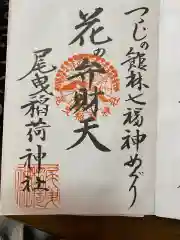 つつじの館林七福神めぐり
花の弁財天
尾曳稲荷神社